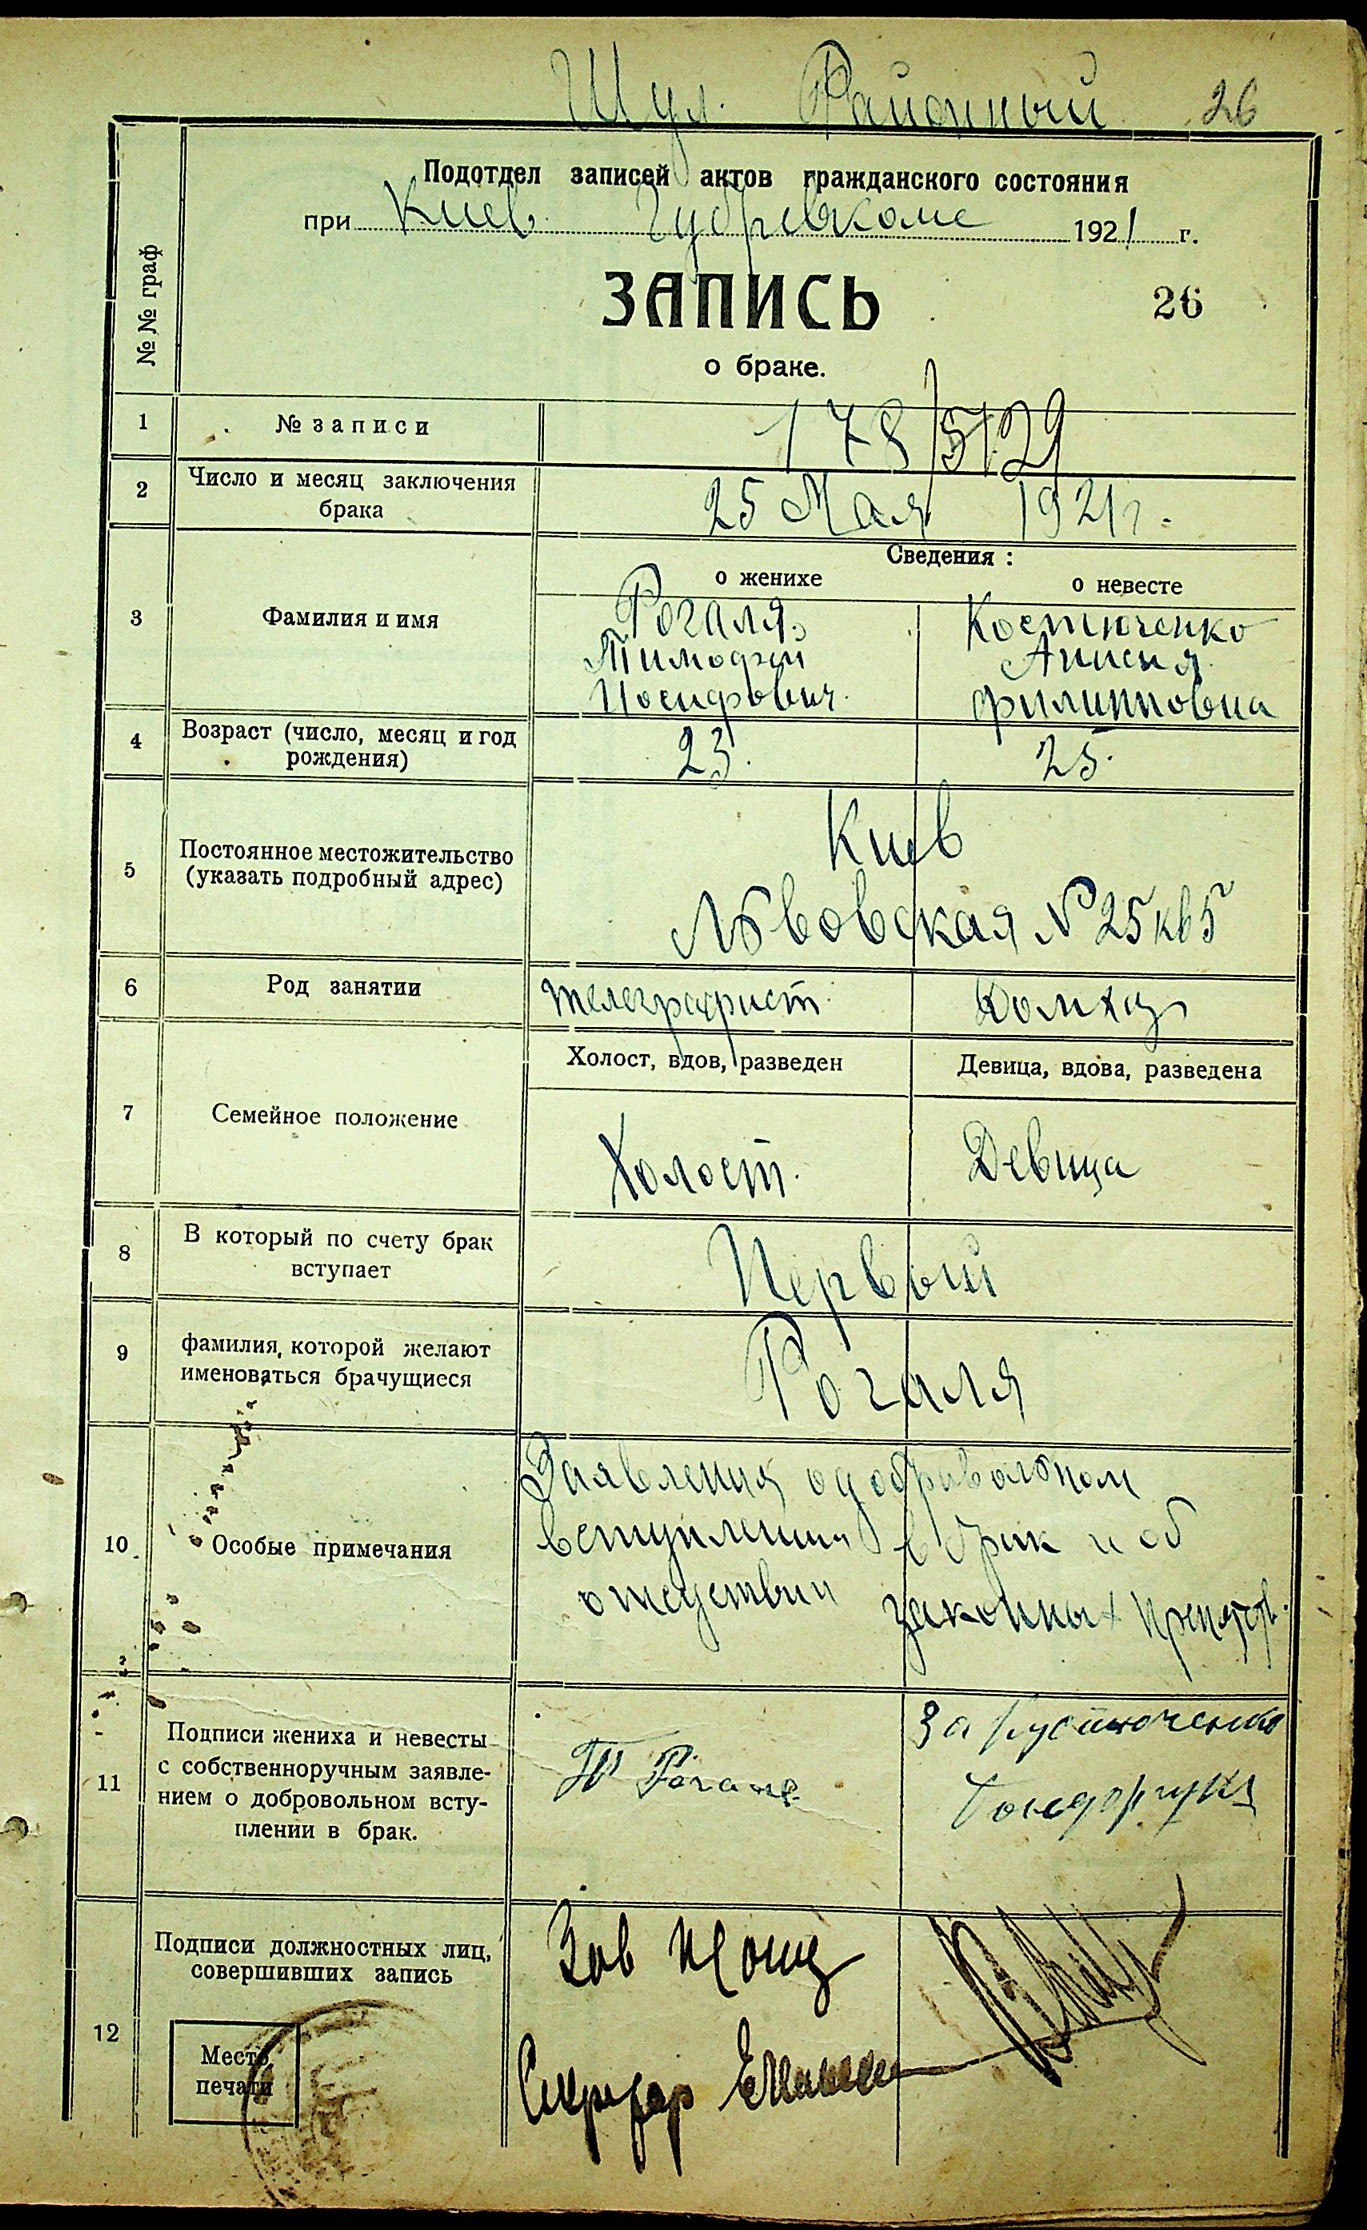 Шул. Районный 26
Подотдел записей актов гражданского состояния
при Киев. Губревкоме 1921 г.
№ № граф
ЗАПИСЬ
26
о браке.
1 № записи 178/5129
2 Число и месяц заключения
брака
25 Мая 1921 г.
Сведения:
о женихе о невесте
3 Фамилия и имя
Рогаля Костюченко
Тимофей Анисия
Иосифович. Филипповна
4 Возраст (число, месяц и год
рождения)
23. 25.
5 Постоянное местожительство
(указать подробный адрес)
Киев
Львовская № 25 кв 5
6 Род занятии телеграфист. Домхоз
Холост, вдов, разведен Девица, вдова, разведена
7 Семейное положение
Холост. Девица
8 В который по счету брак
вступает
Первый
9 фамилия, которой желают
именоваться брачущиеся
Рогаля
10 Особые примечания
Заявления о добровольном
вступлении в брак и об
отсуствии законных препятств.
11 Подписи жениха и невесты
с собственноручным заявле-
нием о добровольном всту-
плении в брак.
Т Рогаля За Кустюченко
12 Подписи должностных лиц,
совершивших запись
Зав
Секретар
Место
печати